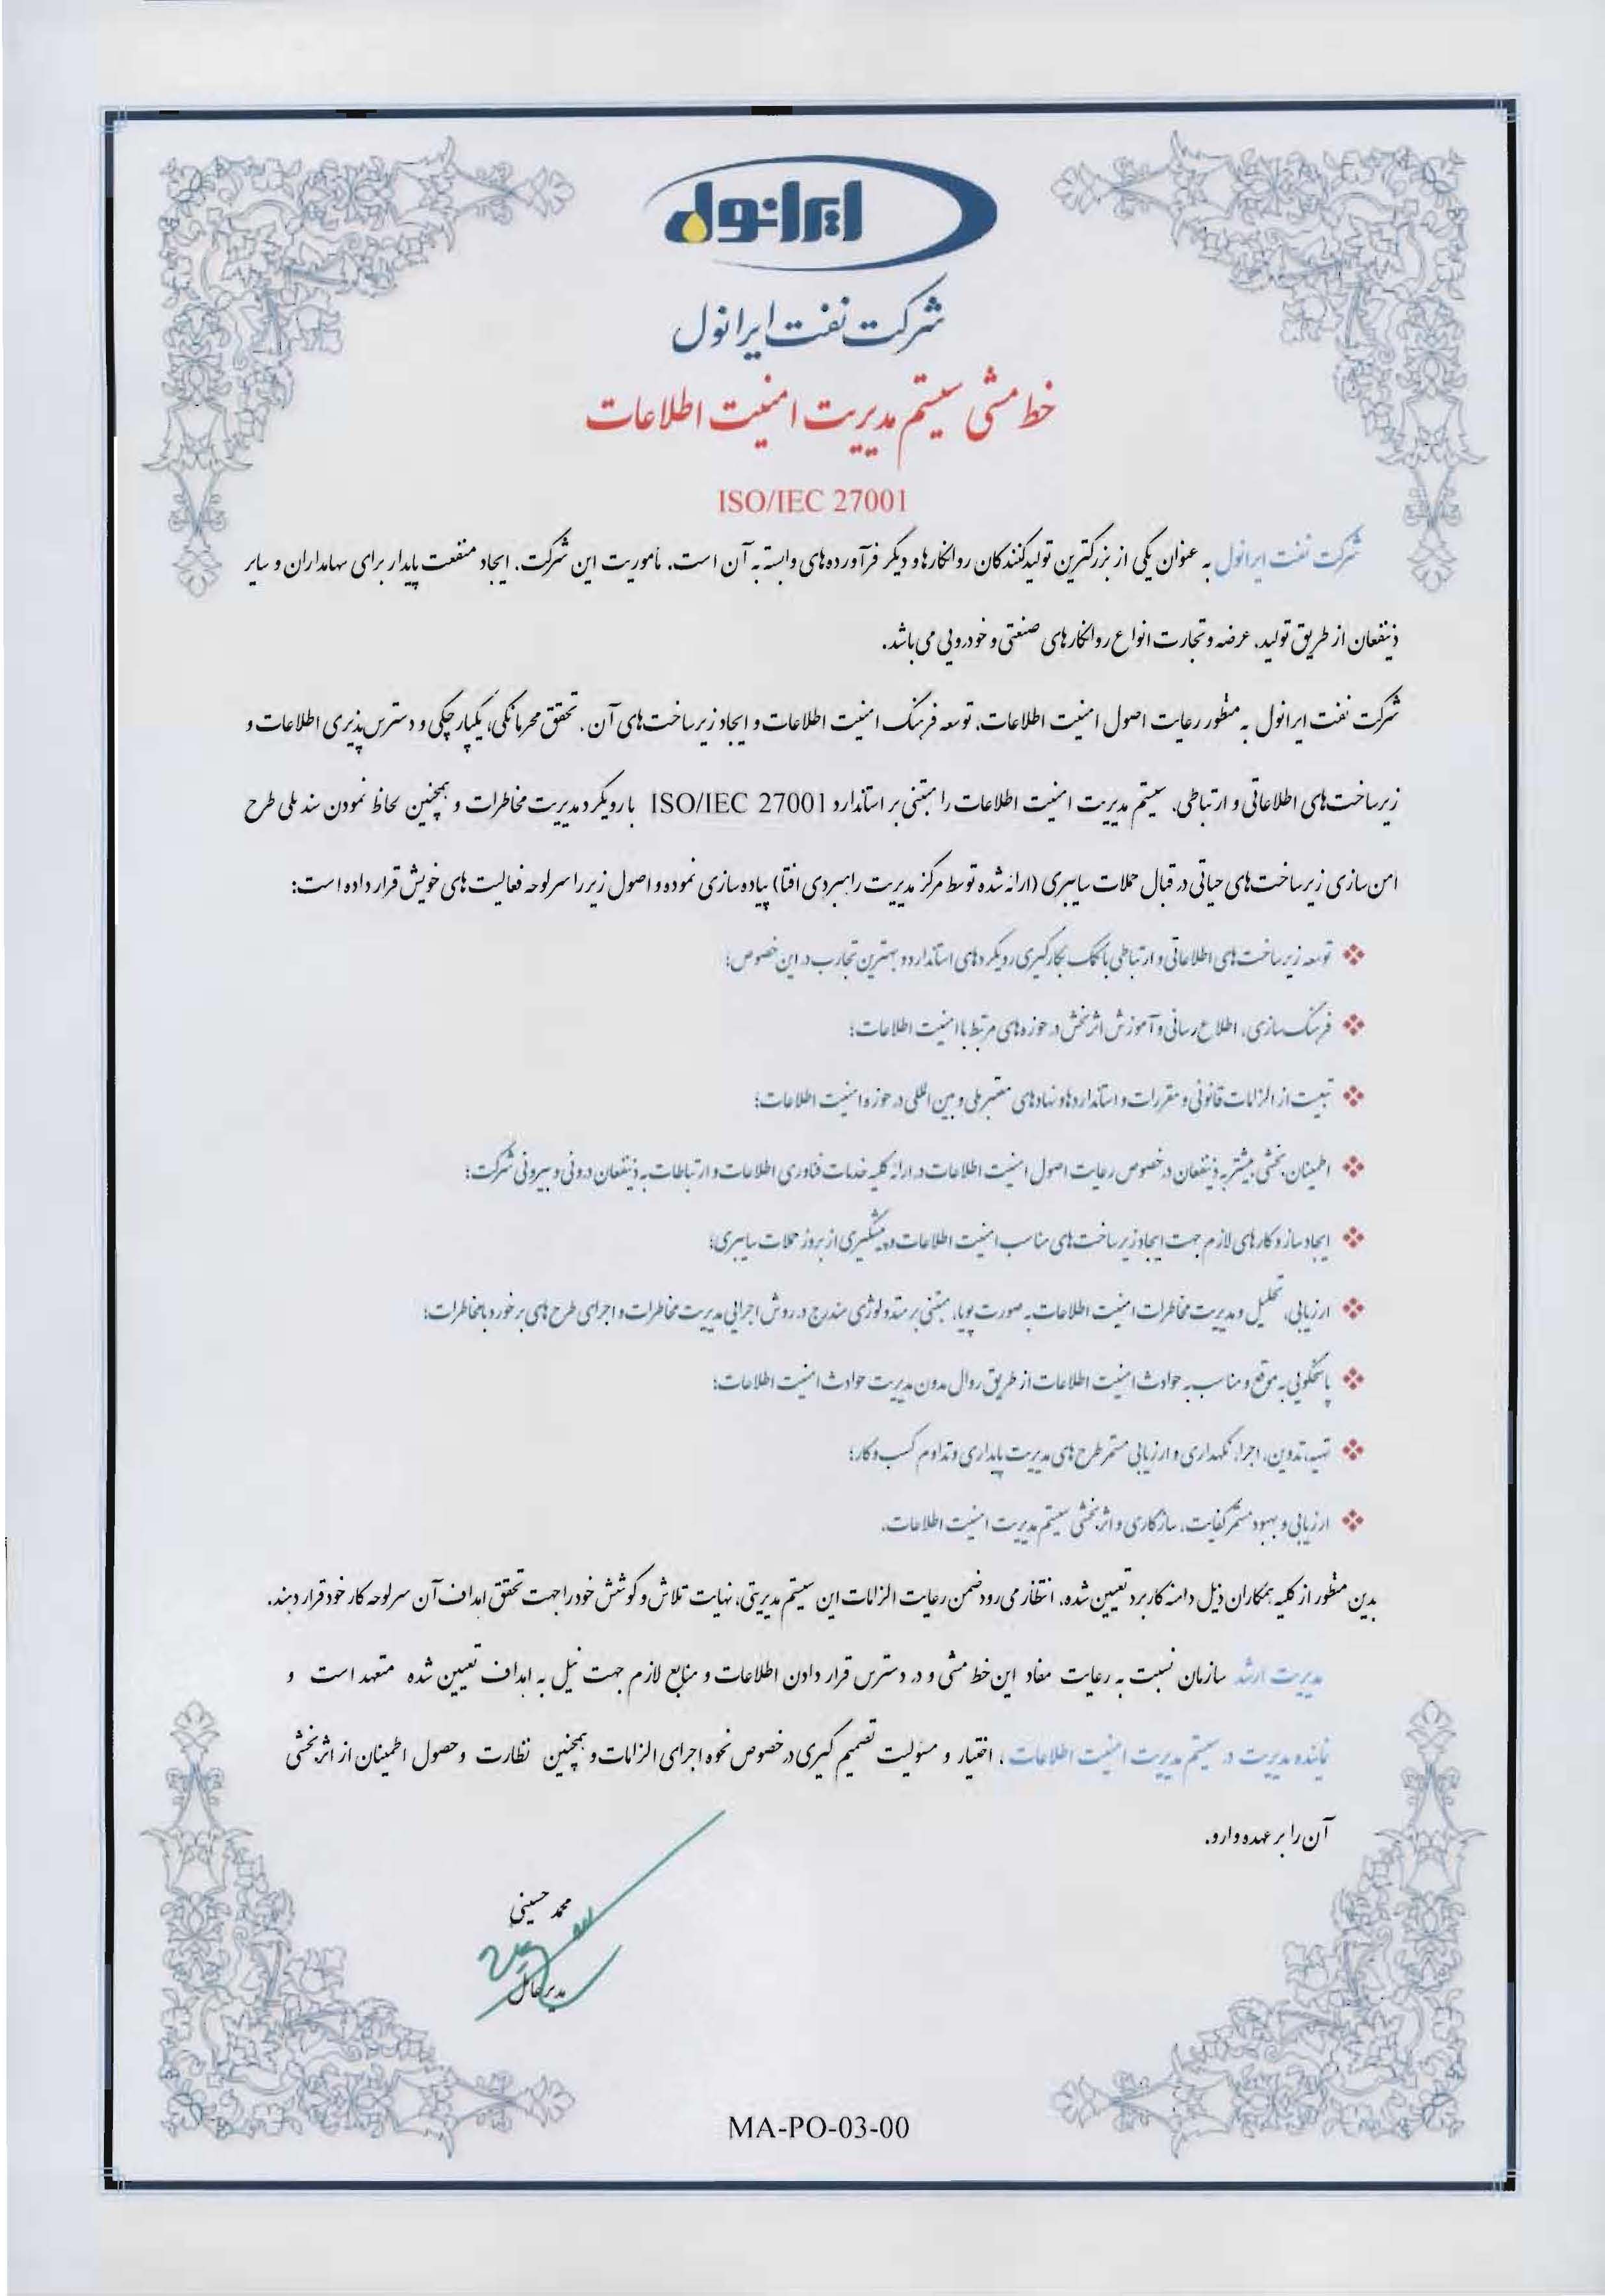 ایرانول
شرکت نفت ایرانول
خط مشی سیستم مدیریت امنیت اطلاعات
ISO/IEC 27001
شرکت نفت ایرانول به عنوان یکی از بزرگترین تولیدکنندگان روانکارها و دیگر فرآورده‌های وابسته به آن است. مأموریت این شرکت، ایجاد منفعت پایدار برای سهامداران و سایر
ذینفعان از طریق تولید، عرضه و تجارت انواع روانکارهای صنعتی و خودرویی می‌باشد.
شرکت نفت ایرانول به منظور رعایت اصول امنیت اطلاعات، توسعه فرهنگ امنیت اطلاعات و ایجاد زیرساخت‌های آن، تحقق محرمانگی، یکپارچگی و دسترس‌پذیری اطلاعات و
زیرساخت‌های اطلاعاتی و ارتباطی، سیستم مدیریت امنیت اطلاعات را مبتنی بر استاندارد ISO/IEC 27001 با رویکرد مدیریت مخاطرات و همچنین لحاظ نمودن سند ملی طرح
امن سازی زیرساخت‌های حیاتی در قبال حملات سایبری (ارائه شده توسط مرکز مدیریت راهبردی افتا) پیاده سازی نموده و اصول زیر را سرلوحه فعالیت‌های خویش قرار داده است:
❖ توسعه زیرساخت‌های اطلاعاتی و ارتباطی با کمک بکارگیری رویکردهای استاندارد و بهترین تجارب در این خصوص؛
❖ فرهنگ سازی، اطلاع رسانی و آموزش اثربخش در حوزه‌های مرتبط با امنیت اطلاعات؛
❖ تبعیت از الزامات قانونی و مقررات و استانداردها و نهادهای معتبر ملی و بین المللی در حوزه امنیت اطلاعات؛
❖ اطمینان بخشی بیشتر به ذینفعان در خصوص رعایت اصول امنیت اطلاعات در ارائه کلیه خدمات فناوری اطلاعات و ارتباطات به ذینفعان درونی و بیرونی شرکت؛
❖ ایجاد ساز و کارهای لازم جهت ایجاد زیرساخت‌های مناسب امنیت اطلاعات و پیشگیری از بروز حملات سایبری؛
❖ ارزیابی، تحلیل و مدیریت مخاطرات امنیت اطلاعات به صورت پویا، مبتنی بر متدولوژی مندرج در روش اجرایی مدیریت مخاطرات و اجرای طرح‌های برخورد با مخاطرات؛
❖ پاسخگویی به موقع و مناسب به حوادث امنیت اطلاعات از طریق روال مدون مدیریت حوادث امنیت اطلاعات؛
❖ تهیه، تدوین، اجرا، نگهداری و ارزیابی مستمر طرح‌های مدیریت پایداری و تداوم کسب و کار؛
❖ ارزیابی و بهبود مستمر کفایت، سازگاری و اثربخشی سیستم مدیریت امنیت اطلاعات.
بدین منظور از کلیه همکاران ذیل دامنه کاربرد تعیین شده، انتظار می رود ضمن رعایت الزامات این سیستم مدیریتی، نهایت تلاش و کوشش خود را جهت تحقق اهداف آن سرلوحه کار خود قرار دهند.
مدیریت ارشد سازمان نسبت به رعایت مفاد این خط مشی و در دسترس قرار دادن اطلاعات و منابع لازم جهت نیل به اهداف تعیین شده متعهد است و
نماینده مدیریت در سیستم مدیریت امنیت اطلاعات، اختیار و مسئولیت تصمیم گیری در خصوص نحوه اجرای الزامات و همچنین نظارت و حصول اطمینان از اثربخشی
آن را بر عهده دارد.
محمد حسینی
مدیرعامل
MA-PO-03-00